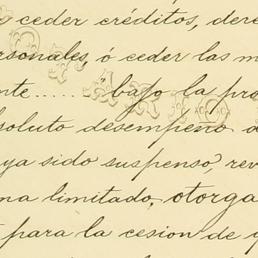 ceder créditos, dere
rsonales, ó ceder las m
nte...... "bajo la pro
soluto desempeño d
ya sido suspenso, rev
ma limitado, otorga
para la cesion de